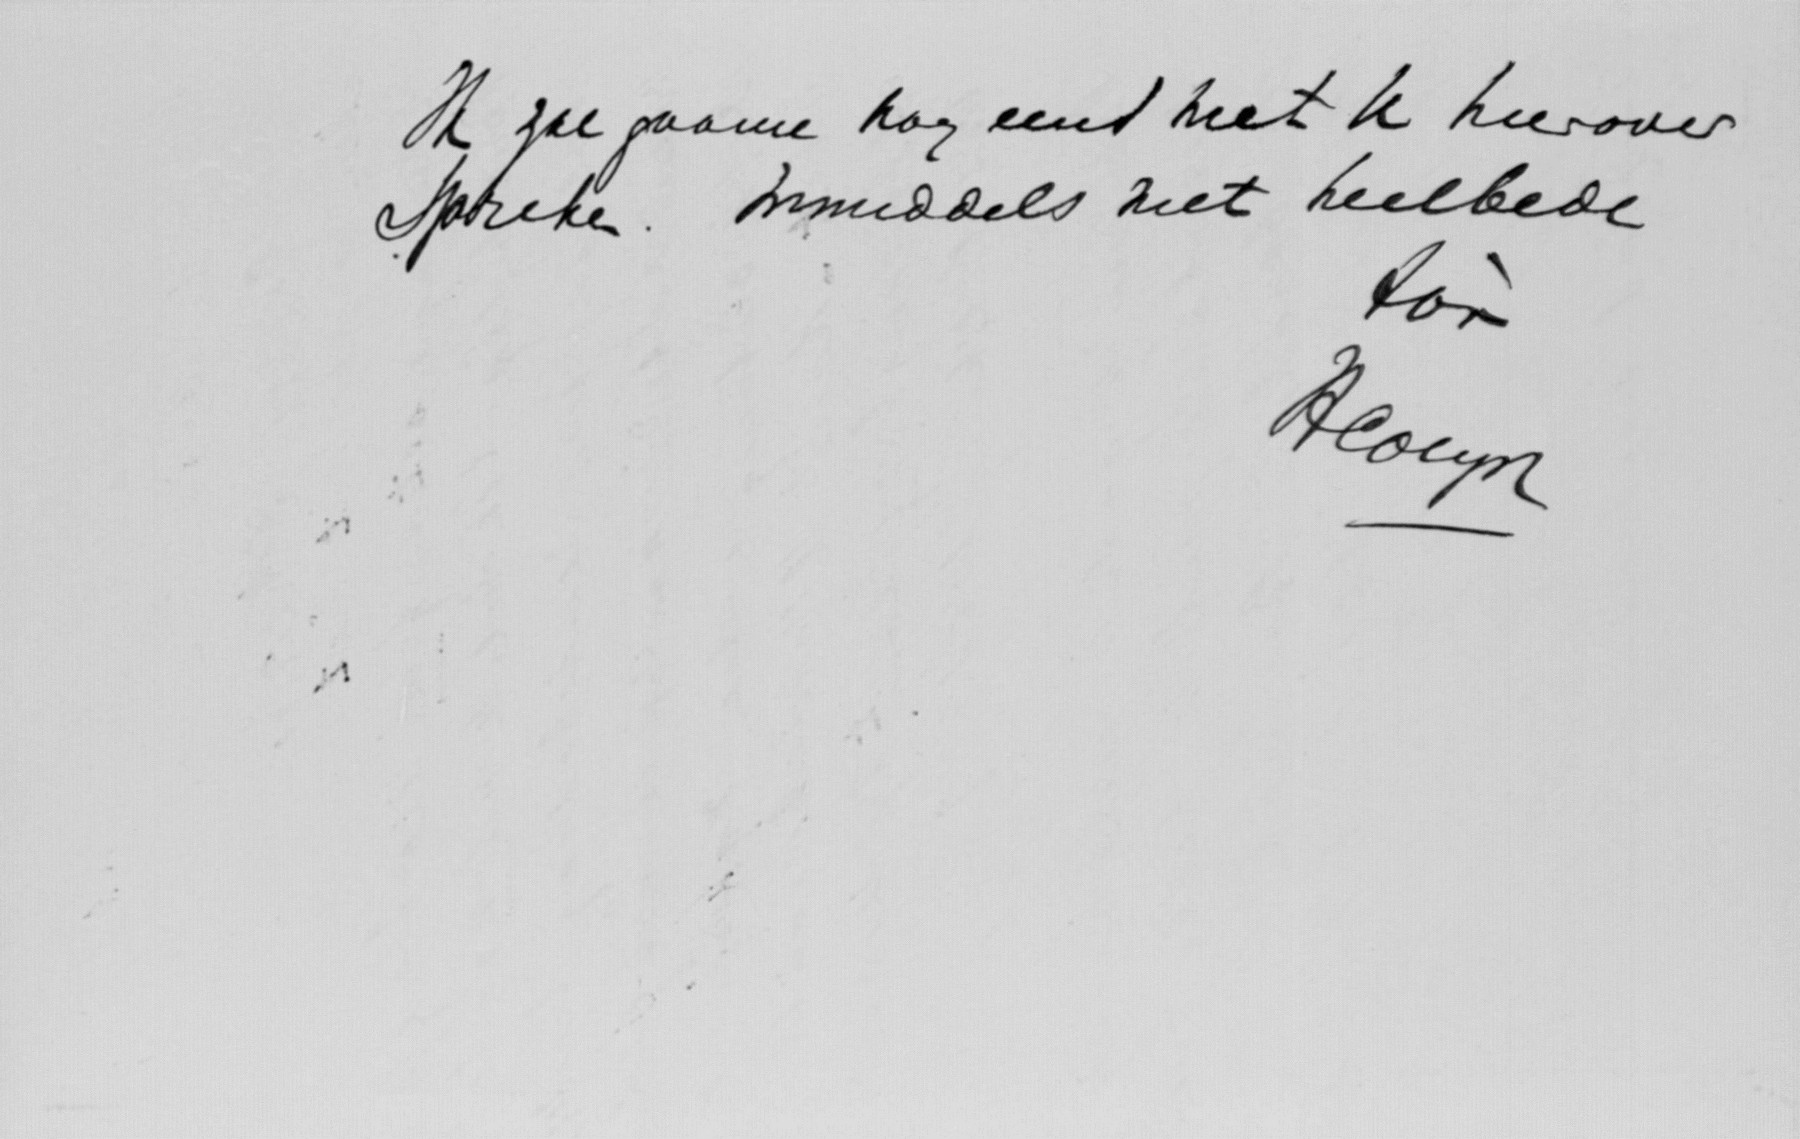 Ik zal gaarne nog eens met U hierover
spreken. Inmiddels met heilbede
tàv
HColijn